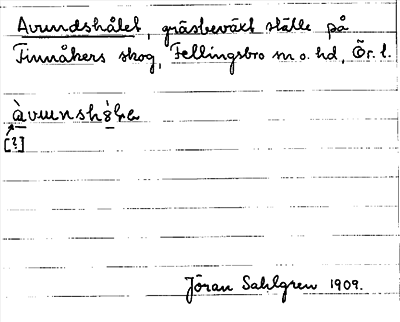 Avundshålet, gräsbeväxt ställe på
Finnåkers skog, Fellingsbro sn o. hd, Ör. l.
àvunshå̀ɫə
[?]
Jöran Sahlgren 1909.